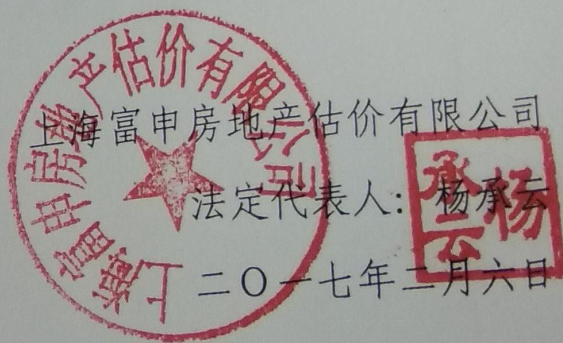 上海富申房地产估价有限公司
法定代表人：杨承云
二〇一七年二月六日
上海富申房地产估价有限公司
杨承云